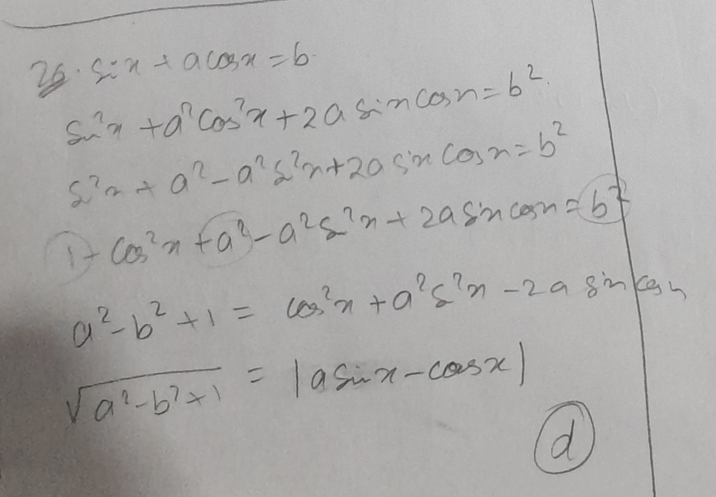 26. Sin x + a cos x = b.
Sin²x + a² cos²x + 2a sin x cos x = b².
S²x + a² - a² S²x + 2a sin x cos x = b²
1 - cos²x + a² - a² S²x + 2a sin x cos x = b²
a² - b² + 1 = cos²x + a² S²x - 2a sin x cos x
√(a² - b² + 1) = |a sin x - cos x|
d